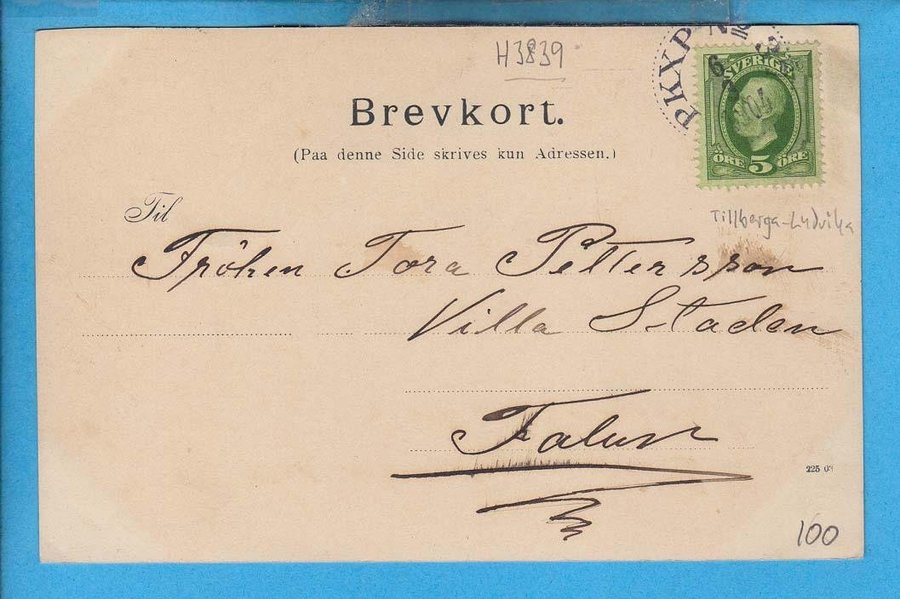 H3839
PKXP No
SVERIGE
6
ÖRE 5 ÖRE
Brevkort.
(Paa denne Side skrives kun Adressen.)
Til
Tillberga-Ludvika
Fröken Tora Pettersson
Villa Staden
Falun
225 03
100